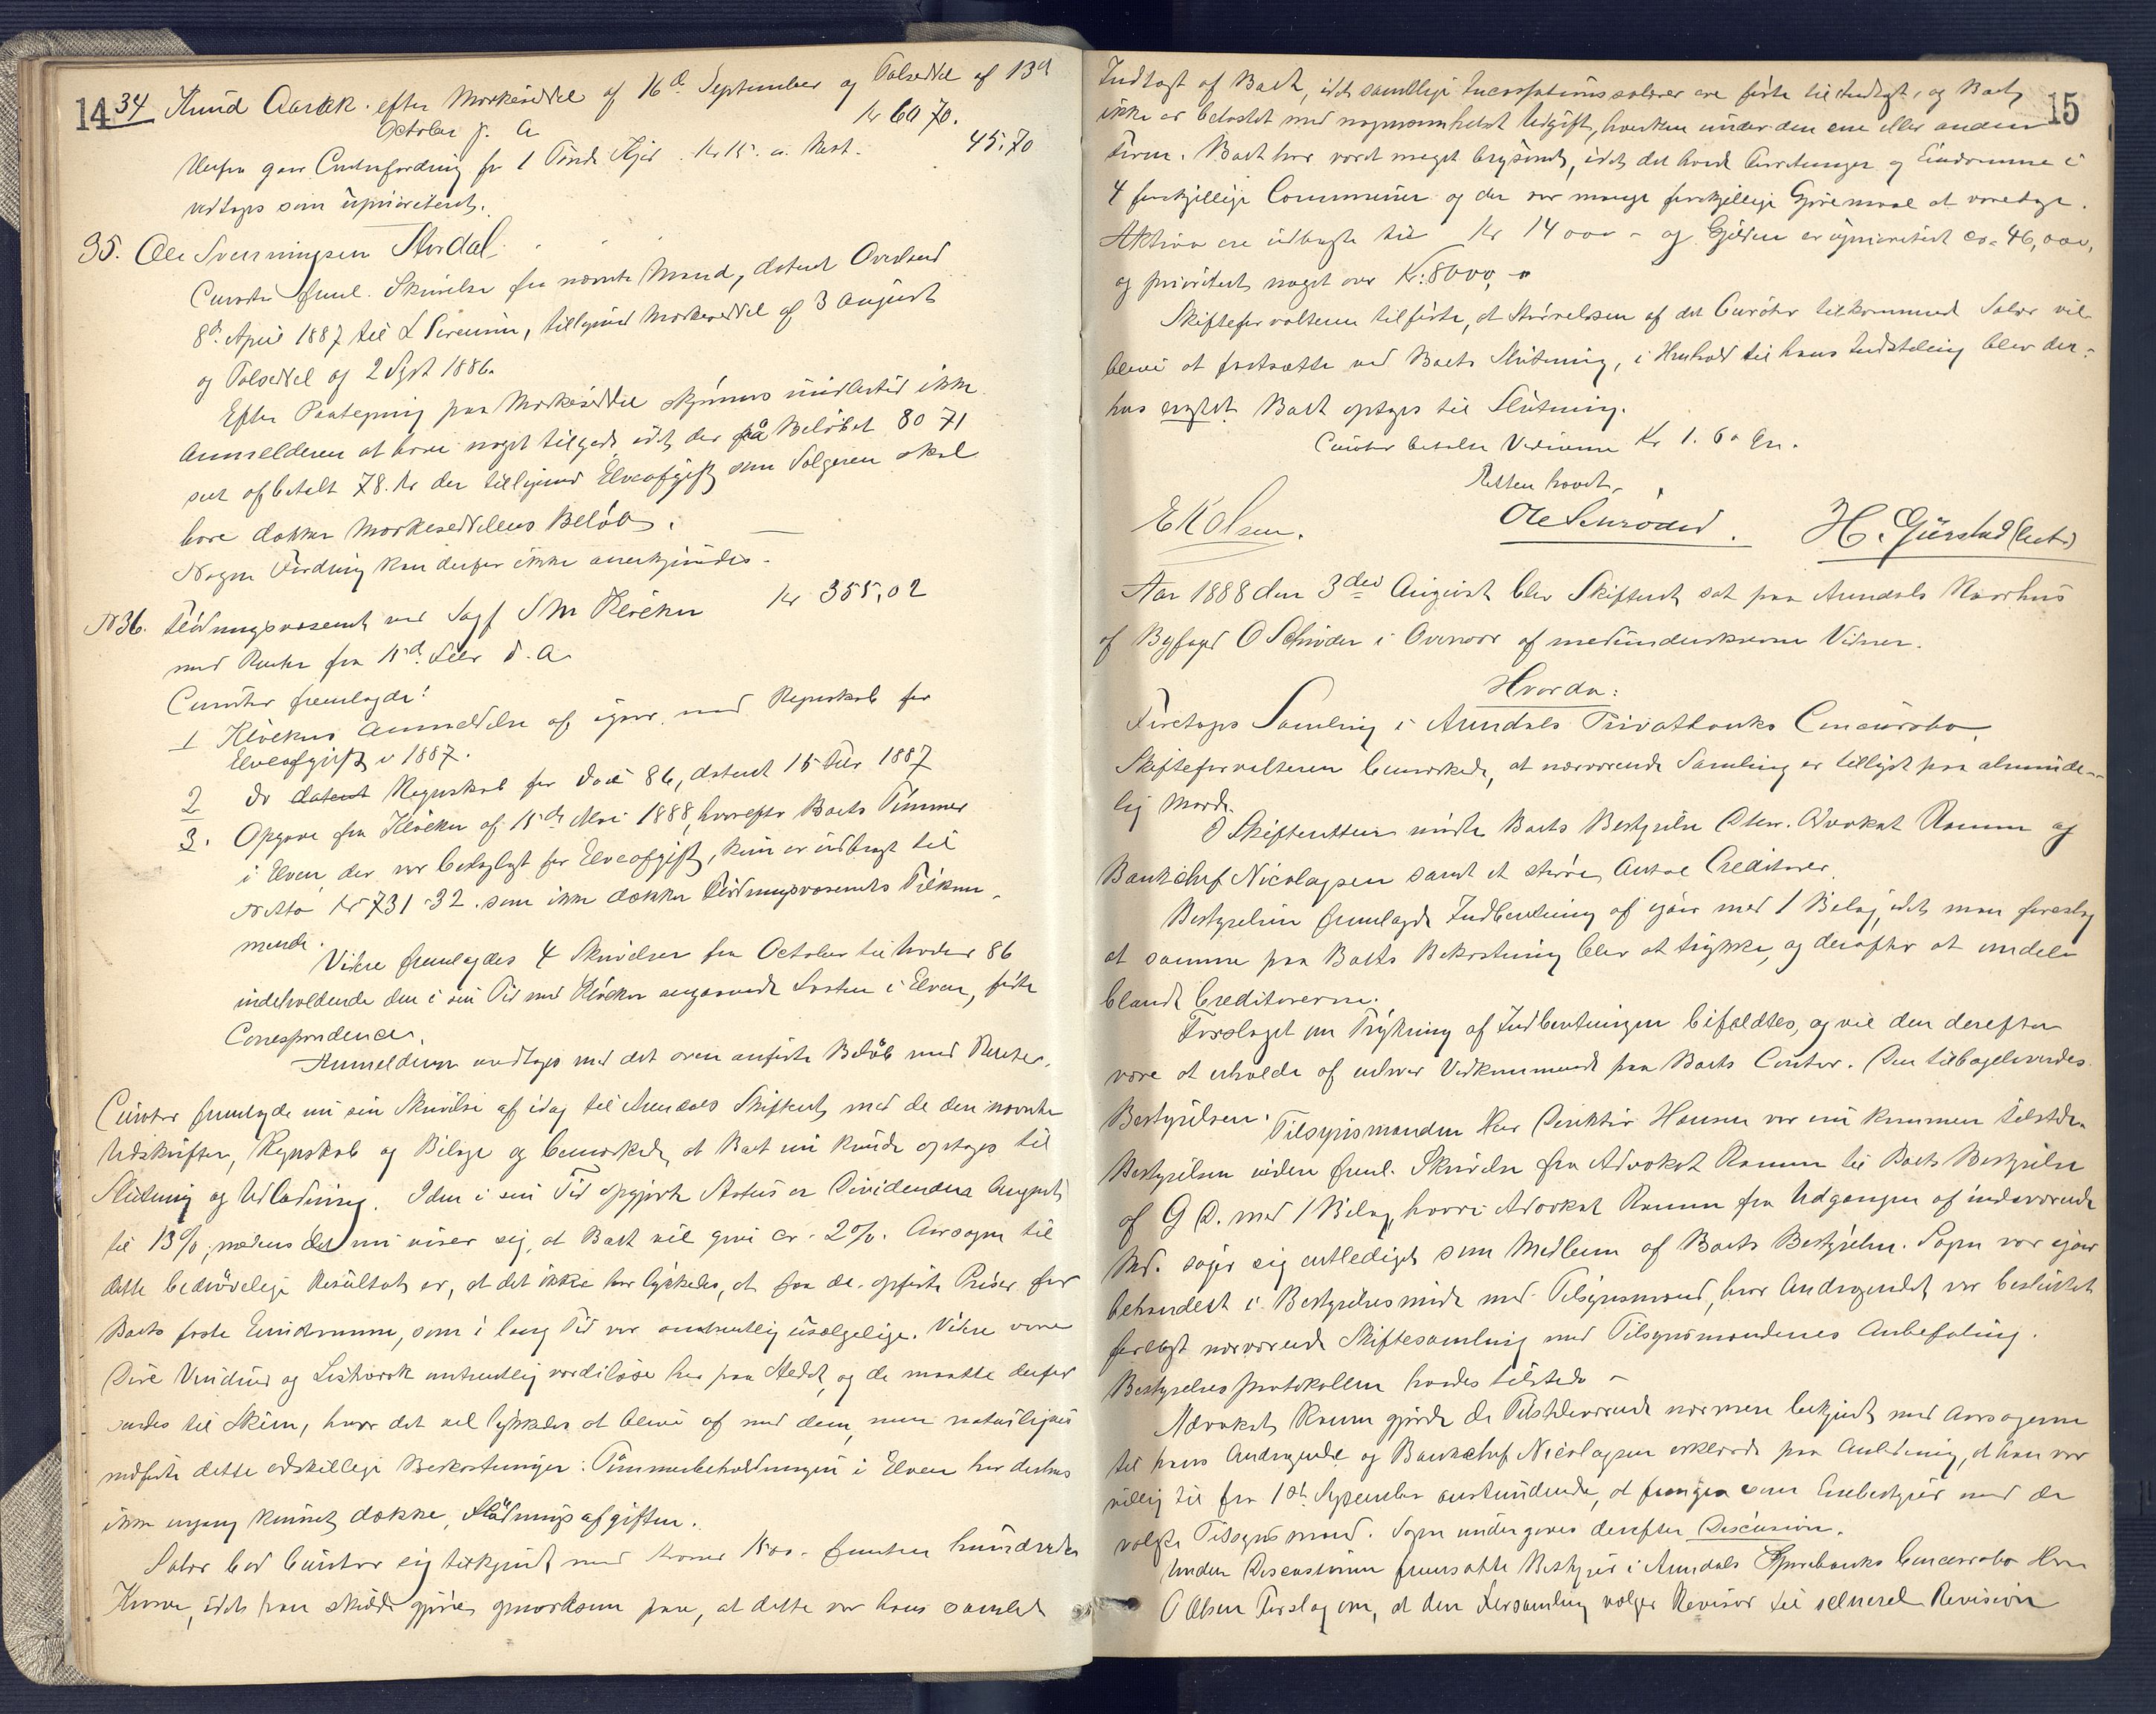 14
34 Knud Aarak. efter Mærkeseddel af 16de September og Tolseddel af 13de
October f. A Kr 60 70.
Herfra gaar Contrafordring for 1 Tønde Kjød. Kr 15. a. Rest. 45,70
vedtages som uprioriteret.
35. Ole Sveinningsen Stordal.
Curator freml. Skrivelse fra nævnte Mand, dateret Overland
8de April 1887 til L , tilligemed Mærkeseddel af 3 August
og Tolseddel af 2 Sept 1886.
Efter Paategning paa Mærkeseddel skjønnes imidlertid ikke
Anmelderen at have noget tilgode, idet der på Beløbet 80 71
sees afbetalt 78. Kr der tilligemed Elveafgift som Sælgeren skal
bære dækker Mærkeseddelens Beløb.
Nogen Fordring kan derfor ikke anerkjendes.
N36. Flødningsvæsenet ved Sagf S M Kløcker Kr 355,02
med Renter fra 15de d. A
Curator fremlagde:
1 Kløckers Anmeldelse af igaar med Regnskab for
Elveafgift i 1887.
2 do datert Regnskab for do i 86, dateret 15 1887
3. Opgave fra Kløcker af 15de Mai 1888, hvorefter Boets Tømmer
i Elven, der var beheftet for Elveafgift, kun er udbragt til
Netto Kr 731-32. som ikke dækker Flødningsvæsenets Tilkom-
mende.
Videre fremlagdes 4 Skrivelser fra October til 86
indeholdende den i sin Tid med Kløcker angaaende Lasten i Elven, førte
Correspondence.
Anmeldelsen vedtages med det oven anførte Beløb med Renter.
Curator fremlagde nu sin Skrivelse af idag til Arendals Skifteret med de deri nævnte
Udskrifter, Regnskab og Bilage og bemærkede, at Boet nu kunde optages til
Slutning og Udlodning. I den i sin Tid opgjorte Status er Dividenden Angivet
til 13%, medens det nu viser sig, at Boet vil give ca. 2%. Aarsagen til
dette bedrøvelige Resultat er, at det ikke har lykkedes, at faa de opførte Priser for
Boets faste Eiendomme, som i lang Tid var omtrentlig usælgelige. Videre vare
Døre Vinduer og Listværk omtrentlig værdiløse her paa Stedet, og de maatte derfor
sendes til Skien, hvor det vel lykkedes at blive af med dem, men naturligvis
medførte dette adskillige Bekostninger: Tømmerbeholdningen i Elven har derhos
ikke engang kunnet dække, Flødningsafgiften.
Salær bad Curator sig tilkjendt med Kroner 1500. femten hundrede
Kroner, idet han skulde gjøre opmærksom paa, at dette var hans samlet
15
Indtægt af Boet, idet samtlige Incassationssalærer ere førte til Indtægt, og Boet
ikke er belastet med nogensomhelst Udgift, hverken under den ene eller anden
Form. Boet har været meget brysomt, idet det havde Forretninger og Eiendomme i
4 forskjellige Communer og der var mange forskjellige Gjøremaal at varetage.
Aktiva ere udbragte til Kr 14 000 - og Gjælden er uprioriteret ca. 46,000,
og prioriteret noget over Kr: 8000,-
Skifteforvalteren tilførte, at Størrelsen af det Curator tilkommende Salær vil
blive at fastsætte ved Boets Slutning, i Henhold til hans Indstilling blev der-
hos Boet optages til Slutning.
Curator betalte Vidnerne Kr 1. 60 Øre.
Retten hævet.
E K Olsen. Ole Schrøder. H. Gjerstad (Cur)
Aar 1888 den 3die August blev Skifteret sat paa Arendals Raadhus
af Byfoged O Schrøder i Overvær af medunderskrevne Vidner.
Hvorda:
Foretages Samling i Arendals Privatbanks Concursbo.
Skifteforvalteren bemærkede, at nærværende Samling er tillyst paa almindel-
lig Maade.
I Skifteretten mødte Boets Bestyrelse DHrr. Advokat Ramm og
Bankchef Nicolaysen samt et større Antal Creditorer.
Bestyrelsen fremlagde Indberetning af igaar med 1 Bilag, idet man foreslog
at samme paa Boets Bekostning blev at trykke, og derefter at omdele
blandt Creditorerne.
Forslaget om Trykning af Indberetningen bifaldtes, og vil den derefter
være at erholde af enhver Vedkommende paa Boets Contor. Den tilbageleveredes
Bestyrelsen.
Tilsynsmanden Herr Direktør Hansen var nu kommen tilstede.
Bestyrelsen videre freml. Skrivelse fra Advokat Ramm til Boets Bestyrelse
af G D. med 1 Bilag, hvori Advokat Ramm fra Udgangen af indeværende
Md. søger sig entlediget som Medlem af Boets Bestyrelse. Sagen var igaar
behandlet i Bestyrelsesmøde med Tilsynsmænd, hvor Andragendet var besluttet
forelagt nærværende Skiftesamling med Tilsynsmændenes Anbefaling.
Bestyrelsesprotokollen havdes tilstede -
Advokat Ramm gjorde de Tilstedeværende nærmere bekjendt med Aarsagerne
til hans Andragende og Bankchef Nicolaysen erklærede paa Anledning, at han var
villig til fra 1ste September anstundende, at fungere som Enebestyrer med de
valgte Tilsynsmænd. Sagen undergaves derefter Discussion.
Under Discussionen fremsatte Bestyrer i Arendals Sparebanks Concursbo Herr
O Olsen Forslag om, at den Forsamling vælger Revisor til Revision